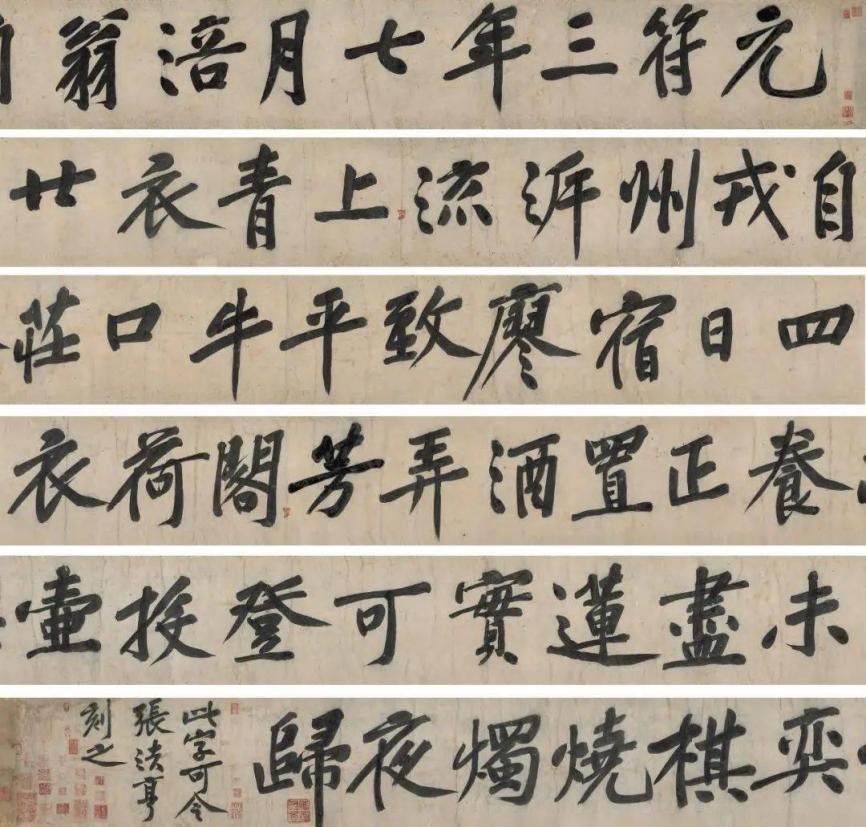 元符三年七月涪翁
自戎州泝流上青衣廿
四日宿廖致平牛口莊
養正置酒弄芳閣荷衣
未盡蓮實可登投壺
奕棋燒燭夜歸
此字可令
張法亨
刻之